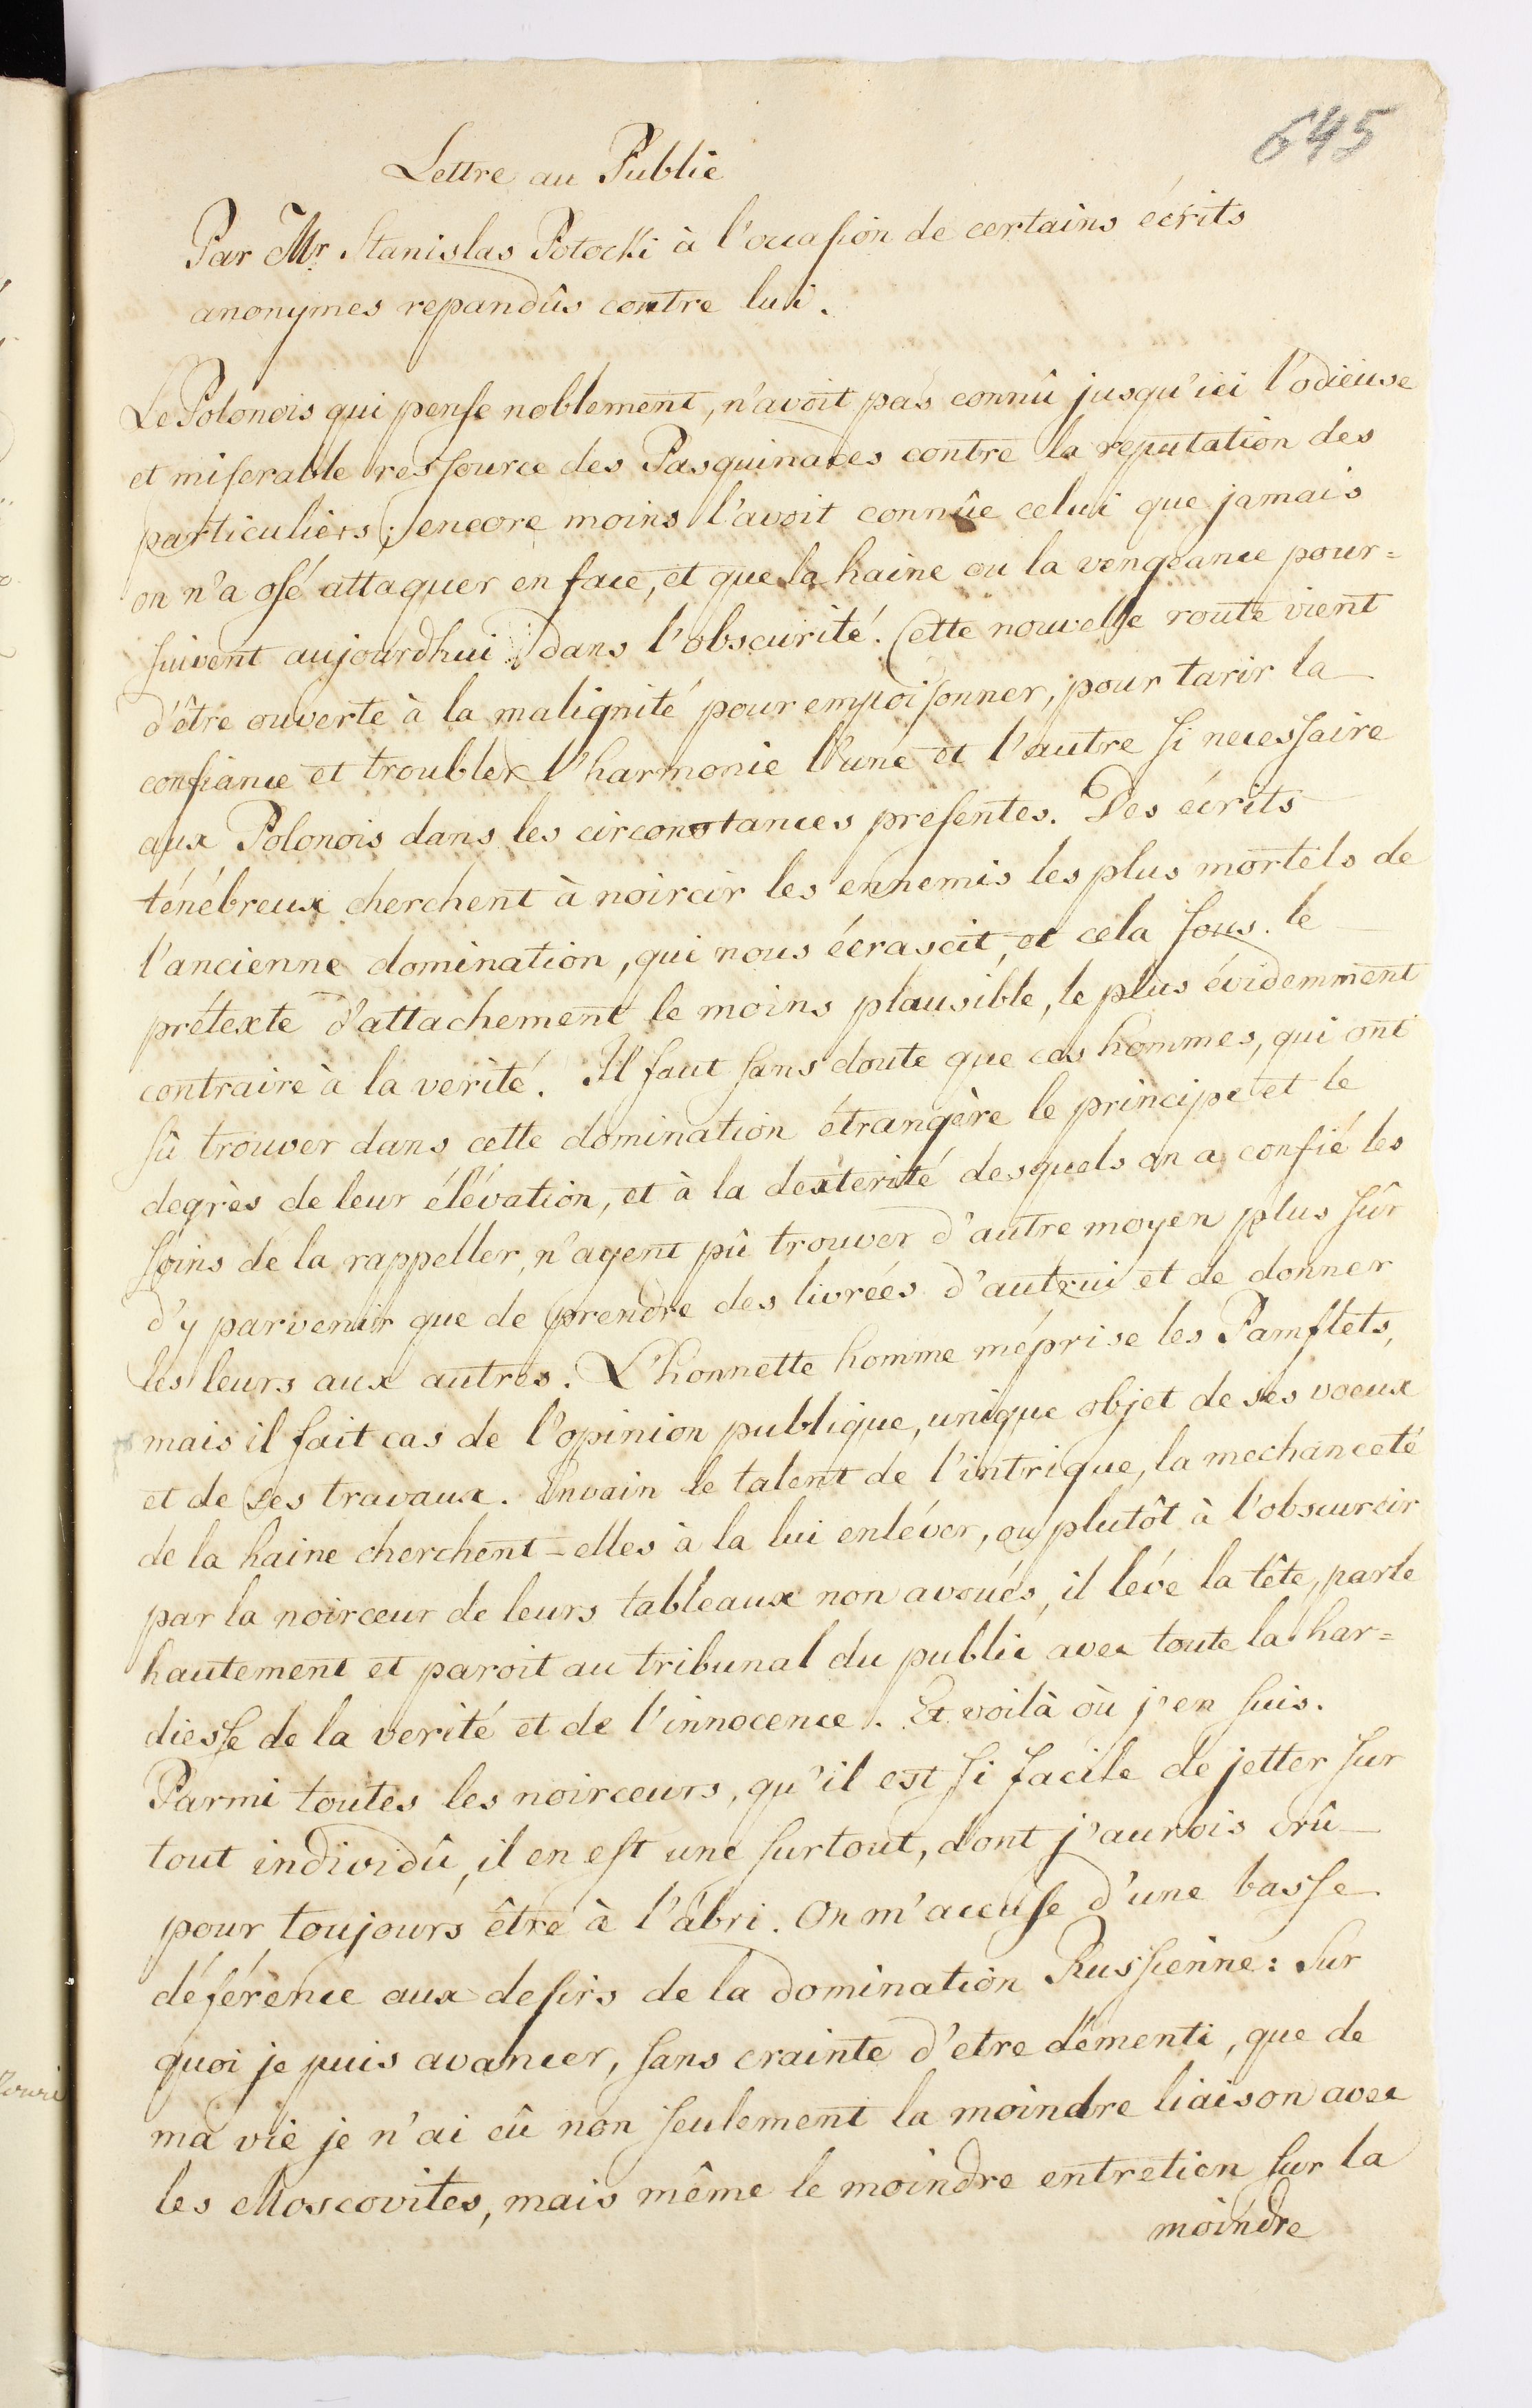 645
Lettre au Public
Par Mr. Stanislas Potocki à l'occasion de certains écrits
anonymes repandûs contre lui.
Le Polonois qui pense noblement, n'avoit pas connû jusqu'ici l'odieuse
et miserable ressource des Pasquinades contre la reputation des
particuliers; encore moins l'avoit connûe celui que jamais
on n'a osé attaquer en face, et que la haine ou la vengeance pour=
suivent aujourdhui dans l'obscurité. Cette nouvelle route vient
d'être ouverte à la malignité pour empoisonner, pour tarir la
confiance et troubler l'harmonie l'une et l'autre si necessaire
aux Polonois dans les circonstances presentes. Des écrits
ténébreux cherchent à noircir les ennemis les plus mortels de
l'ancienne domination, qui nous écrasoit, et cela sous le
prétexte d'attachement le moins plausible, le plus évidemment
contraire à la verité. Il faut sans doute que ces hommes, qui ont
sû trouver dans cette domination étrangère le principe et le
degrès de leur élévation, et à la dexterité desquels on a confié les
soins de la rappeller, n'ayent pû trouver d'autre moyen plus sûr
d'y parvenir que de prendre des livrées d'autrui et de donner
les leurs aux autres. L'honnette homme méprise les Pamflets,
mais il fait cas de l'opinion publique, unique objet de ses voeux
et de ses travaux. Envain le talent de l'intrigue, la mechanceté
de la haine cherchent-elles à la lui enléver, ou plutôt à l'obscurcir
par la noirceur de leurs tableaux non avoués, il léve la tête, parle
hautement et paroit au tribunal du public avec toute la har=
diesse de la verité et de l'innocence. Et voilà où j'en suis.
Parmi toutes les noirceurs, qu'il est si facile de jetter sur
tout individû, il en est une surtout, dont j'aurois crû
pour toujours être à l'abri. On m'accuse d'une basse
déférence aux desirs de la domination Russienne: Sur
quoi je puis avancer, sans crainte d'etre démenti, que de
ma vie je n'ai eû non seulement la moindre liaison avec
les Moscovites, mais même le moindre entretien sur la
moindre